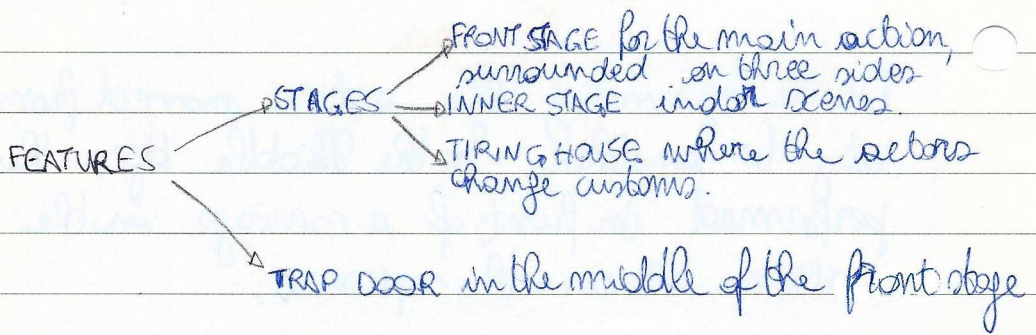 FRONT STAGE for the main action,
surrounded on three sides
STAGES
INNER STAGE indor scenes.
FEATURES
TIRING HOUSE where the actors
change customs.
TRAP DOOR in the middle of the front stage